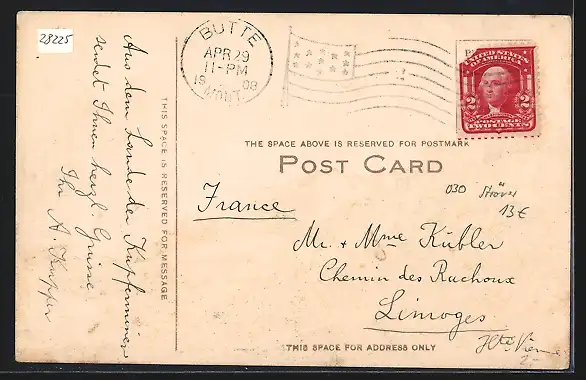 28225
BUTTE
APR 29
11-PM
19 08
MONT.
UNITED STATES
OF AMERICA
2 2
POSTAGE
TWO CENTS
THE SPACE ABOVE IS RESERVED FOR POSTMARK
POST CARD
THIS SPACE IS RESERVED FOR MESSAGE
Aus dem Lande der Kupferminen
sendet Ihnen herzl. Grüsse
Ihr A. Kupper
030
13€
France
Mr. + Mme Kübler
Chemin des Ruchoux
Limoges
Hte Vienne
2-
THIS SPACE FOR ADDRESS ONLY